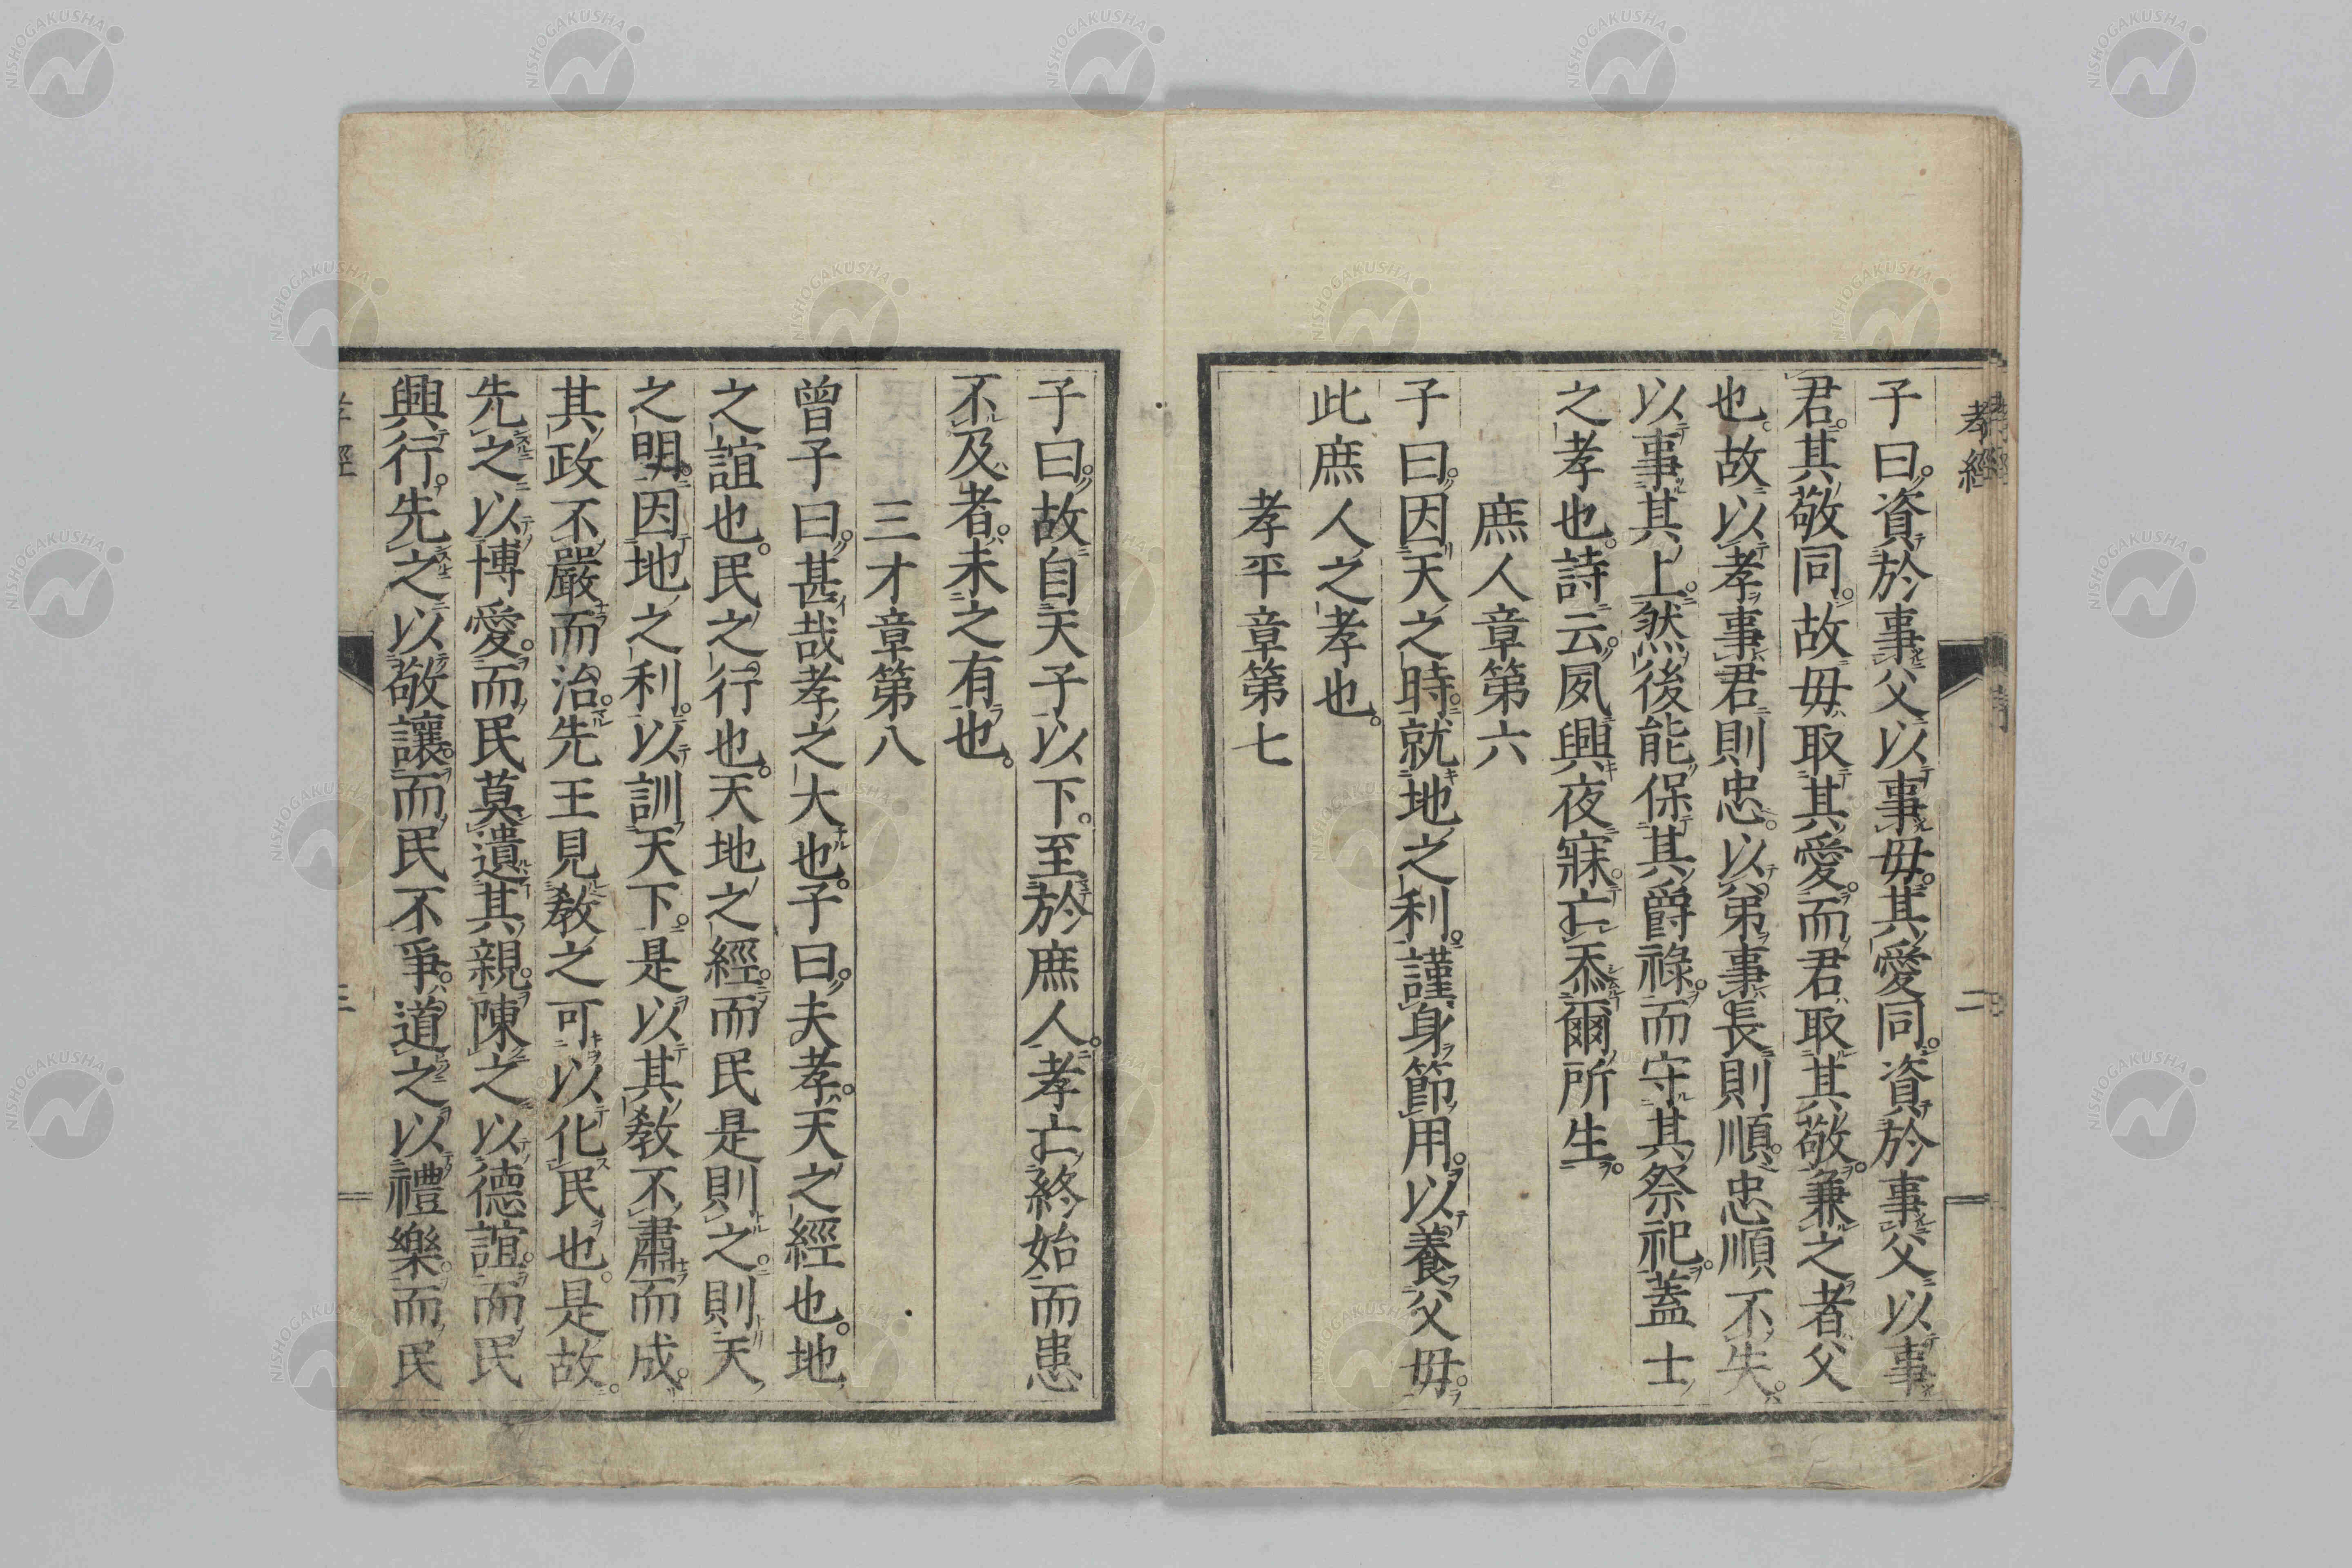 孝經
二
子曰。資於事父以事母。其愛同。資於事父以事
君。其敬同。故母取其愛。而君取其敬。兼之者父
也。故以孝事君則忠。以弟事長則順。忠順不失。
以事其上。然後能保其爵祿。而守其祭祀。蓋士
之孝也。詩云。夙興夜寐。亡忝爾所生。
庶人章第六
子曰。因天之時。就地之利。謹身節用。以養父母。
此庶人之孝也。
孝平章第七
子曰。故自天子以下。至於庶人。孝亡終始而患
不及者。未之有也。
三才章第八
曾子曰。甚哉孝之大也。子曰。夫孝。天之經也。地
之誼也。民之行也。天地之經。而民是則之。則天
之明。因地之利。以訓天下。是以其敎不肅而成。
其政不嚴而治。先王見敎之可以化民也。是故
先之以博愛。而民莫遺其親。陳之以德誼。而民
興行。先之以敬讓。而民不爭。道之以禮樂。而民
NISHOGAKUSHA